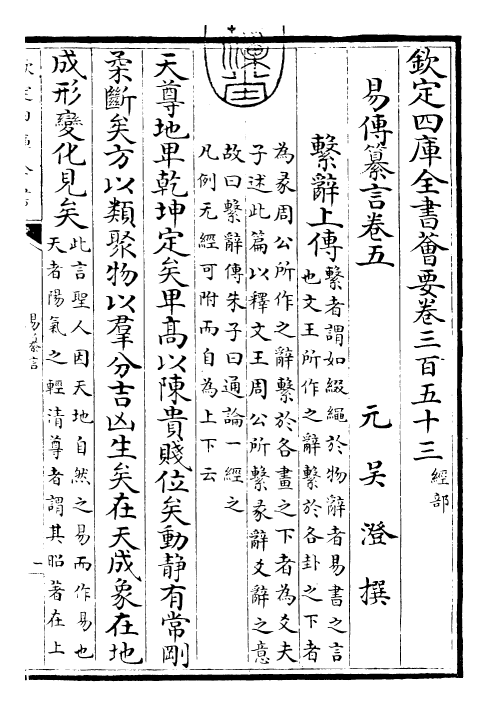 欽定四庫全書薈要卷三百五十三 經部
易傳纂言卷五 元 吳澄 撰
繫辭上傳
繫者謂如綴繩於物辭者易書之言
也文王所作之辭繫於各卦之下者
為彖周公所作之辭繫於各畫之下者為爻夫
子述此篇以釋文王周公所繫彖辭爻辭之意
故曰繫辭傳朱子曰通論一經之
凡例无經可附而自為上下云
天尊地卑乾坤定矣卑高以陳貴賤位矣動静有常剛
柔斷矣方以類聚物以羣分吉凶生矣在天成象在地
成形變化見矣
此言聖人因天地自然之易而作易也
天者陽氣之輕清尊者謂其昭著在上
易纂言
一